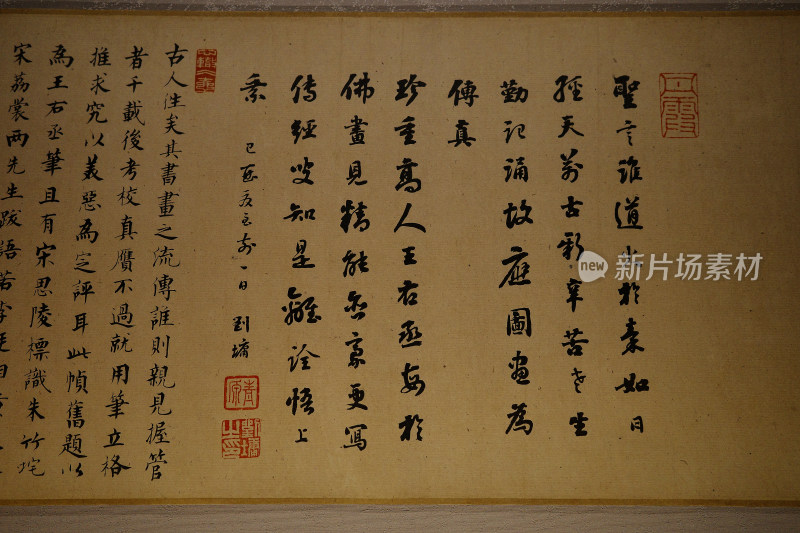 聖言誰道出於秦如日
經天萬古新辛苦老生
勤記誦故應圖畫為
傳真
珍重高人王右丞每於
佛畫見精能豪更寫
傳經叟知是離詮悟上
乘
己酉前一日劉墉
劉墉之印
古人往矣其書畫之流傳誰則親見握管
者千載後考校真贗不過就用筆立格
推求究以美惡為定評耳此幀舊題以
為王右丞筆且有宋思陵標識朱竹垞
宋荔裳兩先生跋語若
new 新片场素材